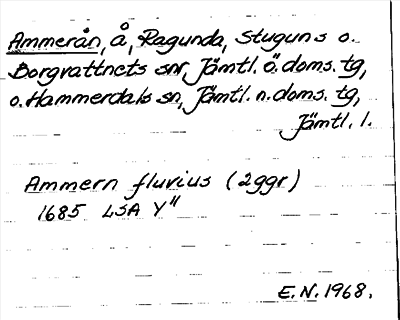 Ammerån, å, Ragunda, Stuguns o.
Borgvattnets snr, Jämtl. ö. doms. tg,
o. Hammerdals sn, Jämtl. n. doms. tg,
Jämtl. l.
Ammern fluvius (2ggr)
1685 LSA Y"
E.N. 1968.